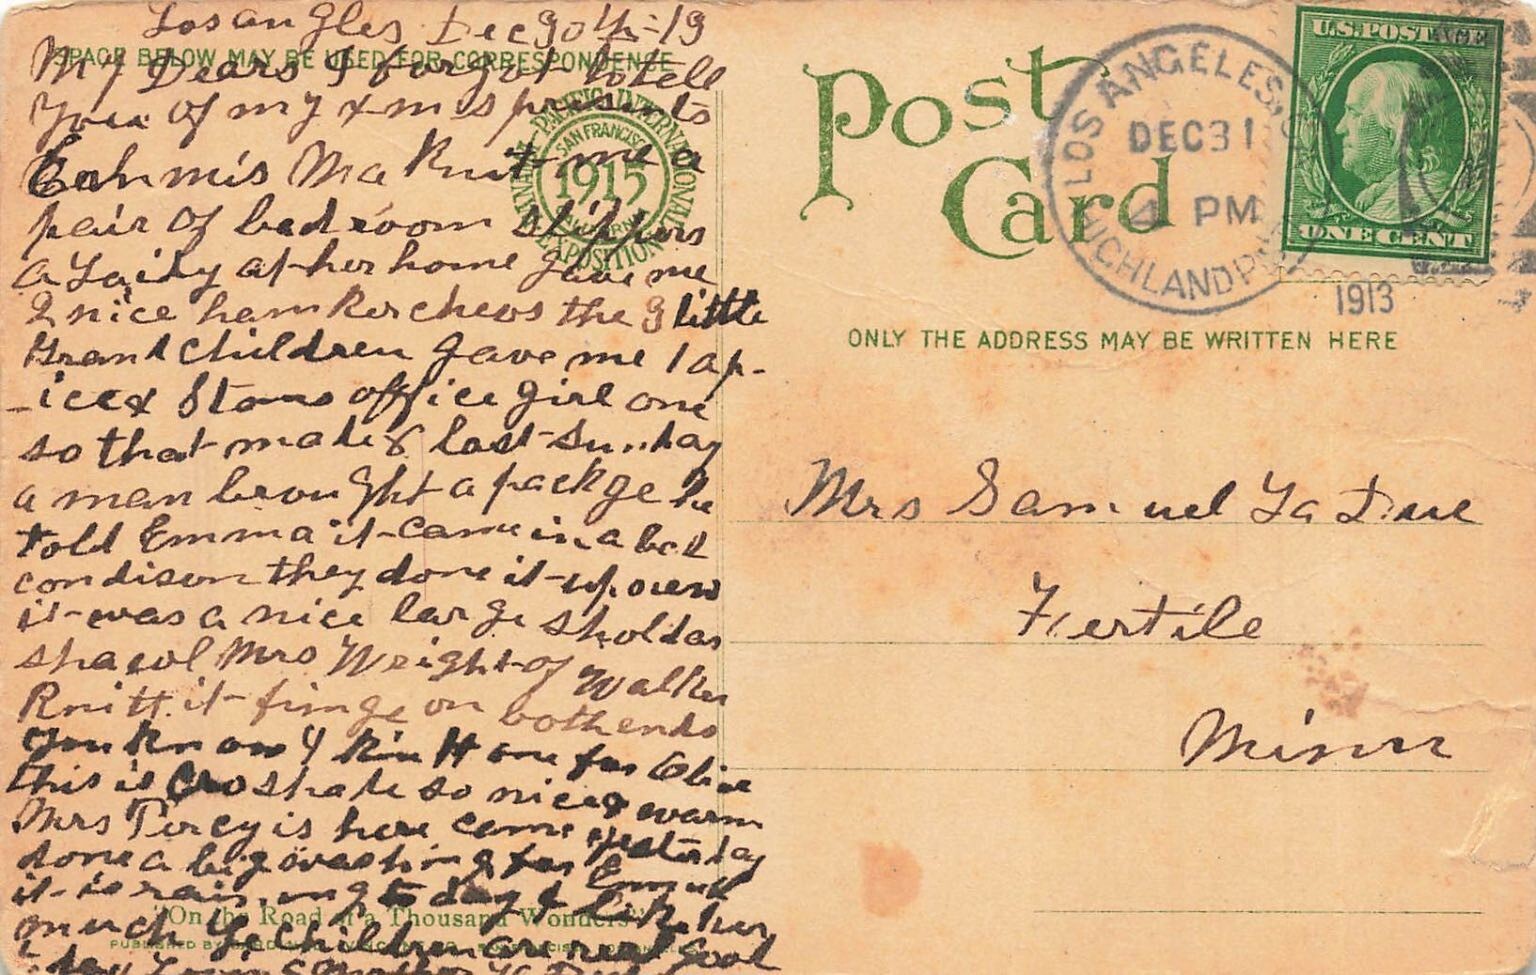 Los angles Dec 30th-13
SPACE BELOW MAY BE USED FOR CORRESPONDENCE
My Dears I forgot to tell
you of my xmas presents
Ma Knit me a
pair of bedroom slippers
a Laidy at her home gave me
2 nice hankerchevs the 3 little
Grand Children gave me 1 ap-
-ice & office girl one
so that made 8 last Sunday
a man brought a packge he
told Emma it came in a bad
condison they done it up over
it was a nice large sholdar
shawl Mrs Wright of Walker
Knitt it finge on both ends
you know I knitt one for Olive
this is Croshade so nice & warm
Mrs Percy is here came yesterday
done a big washing for Emma
it is raining to day I like her
much the Children are real Good
Mother La Due
PANAMA-PACIFIC INTERNATIONAL EXPOSITION
SAN FRANCISCO
1915
CALIFORNIA
"On the Road of a Thousand Wonders"
PUBLISHED BY
Post
Card
LOS ANGELES, CAL.
DEC 31
4 PM
HIGHLAND PK
1913
U.S. POSTAGE
ONE CENT
ONLY THE ADDRESS MAY BE WRITTEN HERE
Mrs Samuel La Due
Fertile
Minn